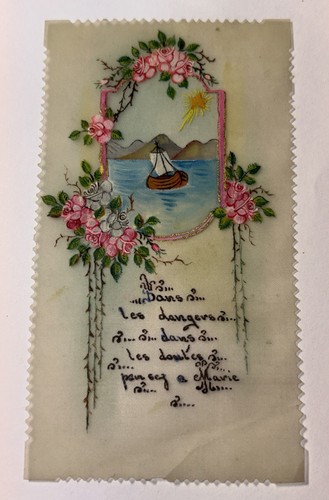 Dans
les dangers
dans
les doutes
pensez a Marie